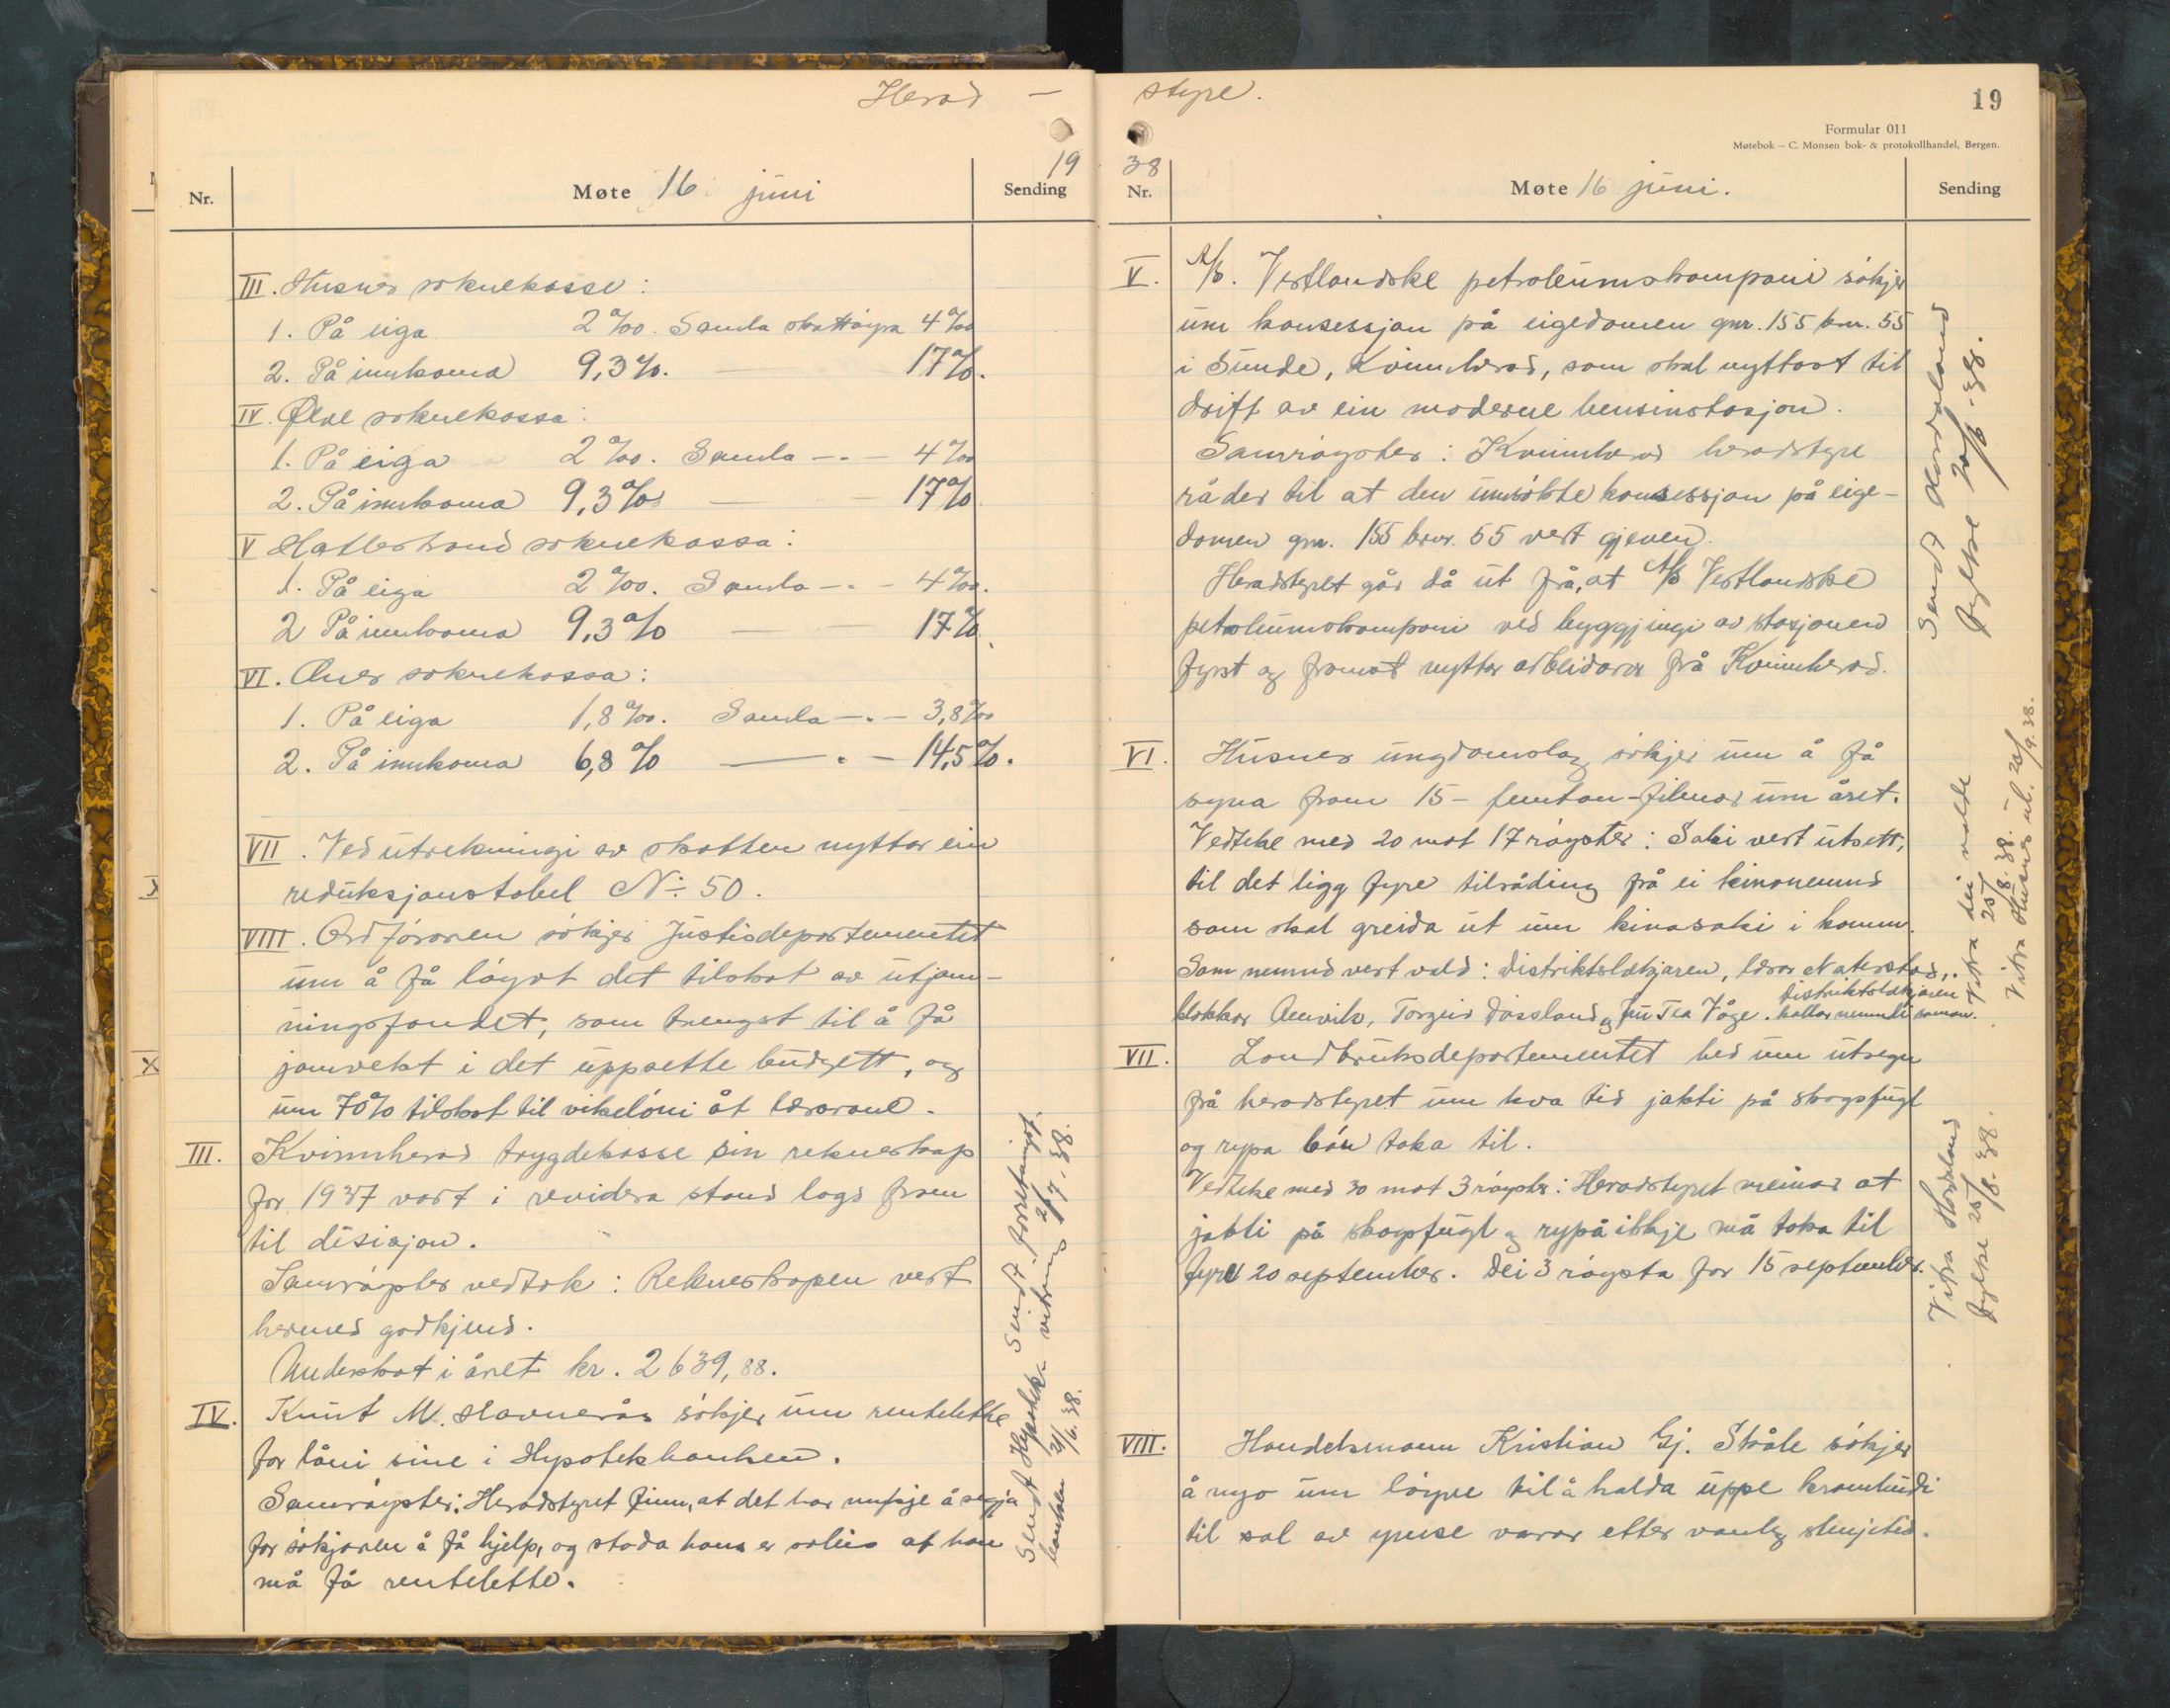 Herad —
19
Nr.
Møte 16 juni
Sending
III. Husnes soknekasse:
1. På eiga 2 ‰. Samla skattøyra 4 ‰
2. På innkoma 9,3%. — 17%.
IV. Ølve soknekassa:
1. På eiga 2 ‰. Samla -"- 4 ‰
2. På innkoma 9,3% — 17%
V Hatlestrand soknekassa:
1. På eiga 2 ‰. Samla -"- 4 ‰.
2 På innkoma 9,3% — 17%.
VI. Ænes soknekassa:
1. På eiga 1,8 ‰. Samla -"- 3,8 ‰
2. På innkoma 6,8% —"— 14,5%.
VII. Ved utrekningi av skatten nyttar ein
reduksjonstabel No 50.
VIII. Ordføraren søkjer Justisdepartementet
um å få løyvt det tilskot av utjam-
ningsfondet, som trengst til å få
jamvekt i det uppsette budgett, og
um 70% tilskot til vikeløni åt lærarane.
III. Kvinnherad trygdekasse sin rekneskap
for 1937 vart i revidera stand lagd fram
til disisjon.
Samrøystes vedtok: Rekneskapen vert
hermed godkjend.
Underskot i året kr. 2639,88.
IV. Knut M. Havnerås søkjer um rentelette
for låni sine i Hypotekbanken.
Samrøystes: Heradstyret finn, at det har mykje å segja
for søkjaren å få hjelp, og stoda hans er soleis at han
må få rentelette.
Sendt Hypotek-
banken 21/6. 38.
styre.
19
Formular 011
Møtebok – C. Monsen bok- & protokollhandel, Bergen.
38
Nr.
Møte 16 juni.
Sending
V. A/S. Vestlandske petroleumskompani søkjer
um konsessjon på eigedomen gnr. 155 bnr. 55
i Sunde, Kvinnherad, som skal nyttast til
drift av ein moderne bensinstasjon.
Samrøystes: Kvinnherad heradstyre
råder til at den umsøkte konsessjon på eige-
domen gnr. 155 bnr. 55 vert gjeven.
Heradstyret går då ut frå, at A/S Vestlandske
petroleumskompani ved byggjingi av stasjonen
fyrst og fremst nyttar arbeidarar frå Kvinnherad.
Sendt Hordaland
fylke 20/6. 38.
VI. Husnes ungdomslag søkjer um å få
syna fram 15 – femtan – filmar um året.
Vedteke med 20 mot 17 røyster: Saki vert utsett,
til det ligg fyre tilråding frå ei kinonemnd
som skal greida ut um kinosaki i komm.
Som nemnd vert vald: Distriktslækjaren, lærar Naterstad,
klokkar Amvik, Torgeir Døssland og fru Tea Våge. Distriktslækjaren
kallar nemndi saman.
Vitra dei valde
25/8. 38.
Vitra Husnes ul. 20/9. 38.
VII. Landbruksdepartementet bed um utsegn
frå heradstyret um kva tid jakti på skogsfugl
og rypa bør taka til.
Vedteke med 30 mot 3 røyster: Heradstyret meinar at
jakti på skogsfugl og rypå ikkje må taka til
fyre 20 september. Dei 3 røysta for 15 september.
Vitra Hordaland
fylke 25/8. 38.
VIII. Handelsmann Kristian Gj. Skåle søkjer
å nyo um løyve til å halda uppe krambudi
til sal av ymse varor etter vanleg stengjetid.